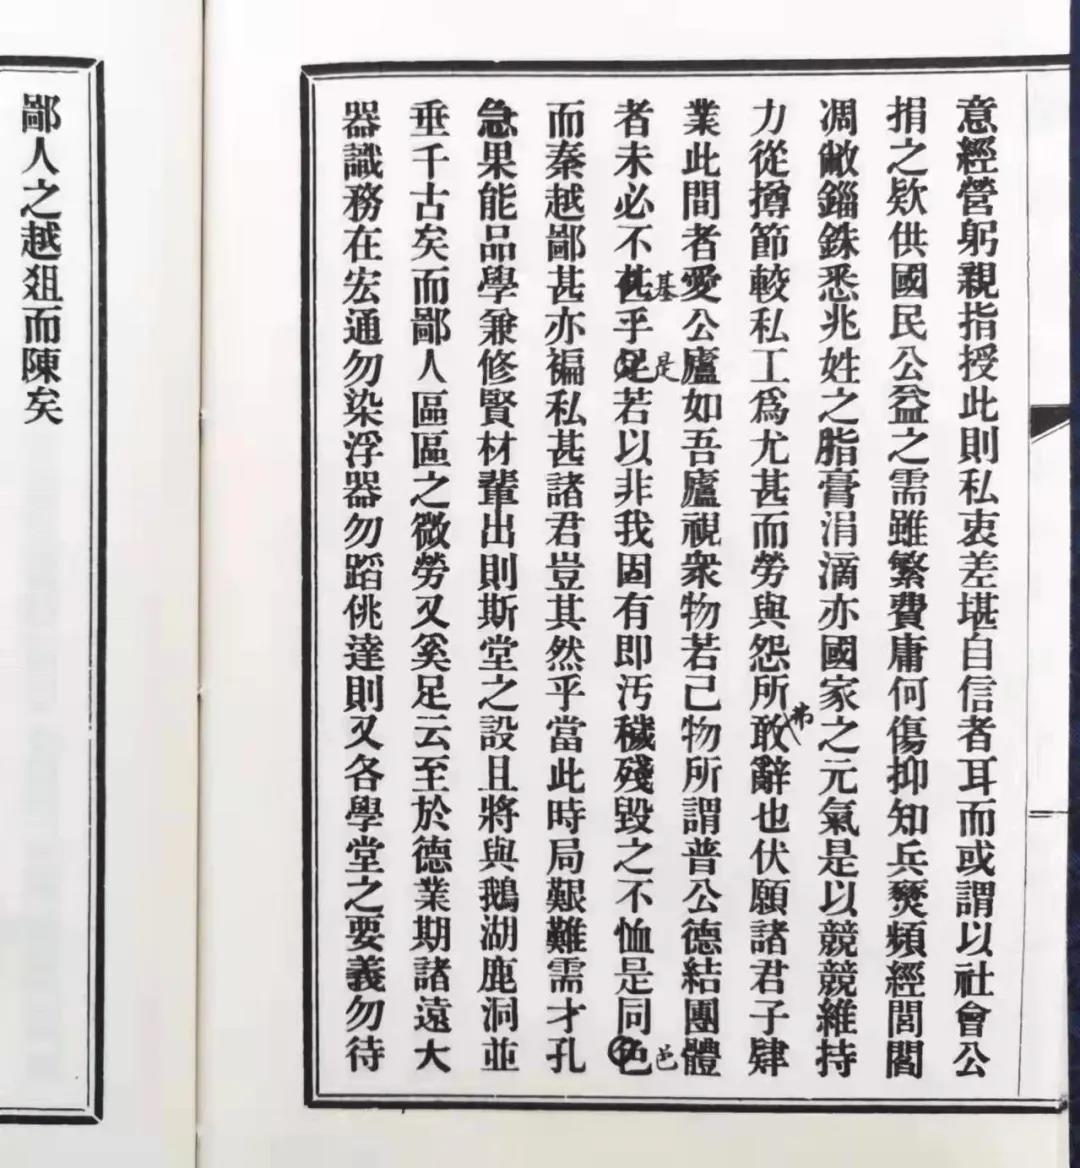 意經營躬親指授此則私衷差堪自信者耳而或謂以社會公
捐之欵供國民公益之需雖繁費庸何傷抑知兵燹頻經閭閻
凋敝錙銖悉兆姓之脂膏涓滴亦國家之元氣是以競競維持
力從撙節較私工爲尤甚而勞與怨所敢辭也伏願諸君子肄
弗
業此間者愛公廬如吾廬視衆物若己物所謂普公德結團體
者未必不甚乎足若以非我固有即汚穢殘毀之不恤是同色
基
是
邑
而秦越鄙甚亦褊私甚諸君豈其然乎當此時局艱難需才孔
急果能品學兼修賢材輩出則斯堂之設且將與鵝湖鹿洞並
垂千古矣而鄙人區區之微勞又奚足云至於德業期諸遠大
器識務在宏通勿染浮器勿蹈佻達則又各學堂之要義勿待
鄙人之越爼而陳矣